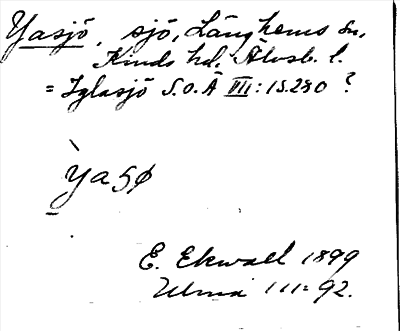 Yasjö, sjö, Länghems sn,
Kinds hd. Älvsb. l.
= Iglasjö S.O.Ä VIII: 15.280 ?
ỳasø
E. Ekwall 1899
Ulma 111:92.